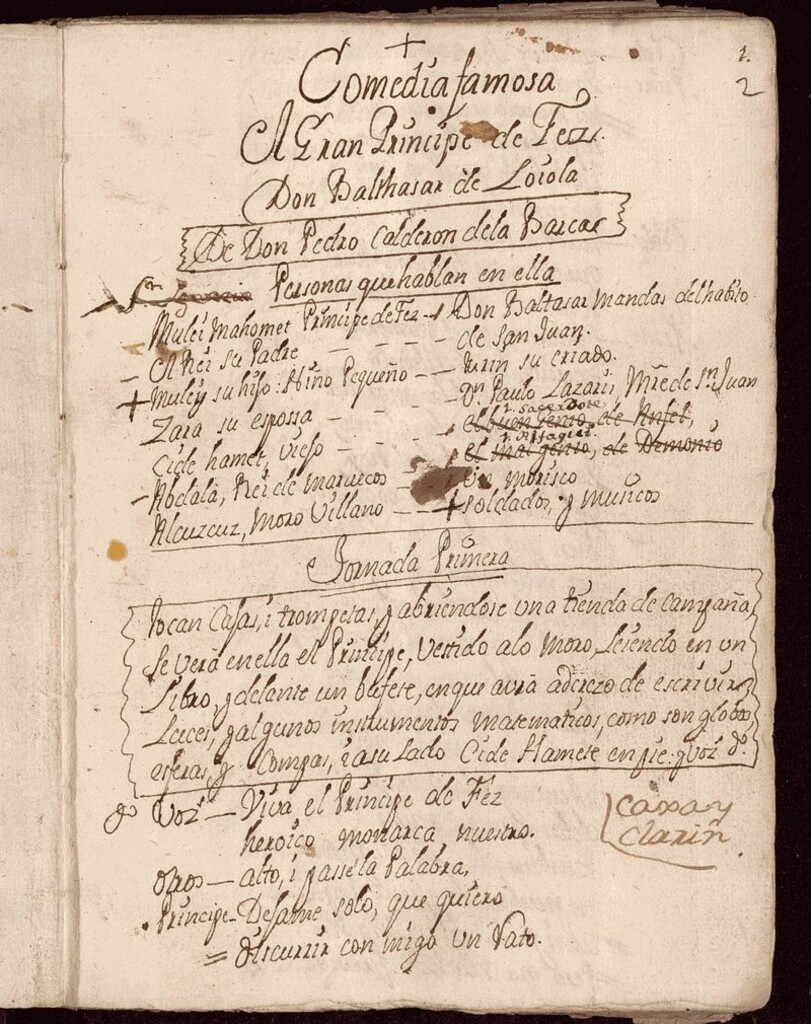 1.
2
Comedia famosa
El Gran Principe de Fez.
Don Balthasar de Loiola
De Don Pedro Calderon de la Barca
Personas que hablan en ella
Mulei Mahomet Principe de Fez
El Rei su Padre
Muley su hijo: Niño Pequeño
Zara su espossa
Cide hamet, viejo
Abdala, Rei de marruecos
Alcuzcuz, Moro Villano
Don Baltasar Mandas del habito
de San Juan.
turin su criado.
Dn. Paulo Lazaris, Mre de Sn. Juan
1. Sacerdote
el buen genio, de Anjel,
1. Alfaqui.
el mal genio, de Demonio
Un morisco
soldados, y musicos
Jornada Primera
tocan Cajas, i trompetas, y abriendose una tienda de campaña,
se verá en ella el Principe, vestido a lo Moro, leiendo en un
Libro, y delante un bufete, en que avrá aderezo de escrivir,
Luces, y algunos instrumentos matematicos, como son globos,
esferas, y Compas, i a su lado Cide Hamete en pie: y voz d.o
Voz — Viva el Principe de Fez
heroico monarca nuestro.
caxa y
clarin
otros — alto, i passe la Palabra,
Principe — Dejame solo, que quiero
= discurrir con migo un rato.